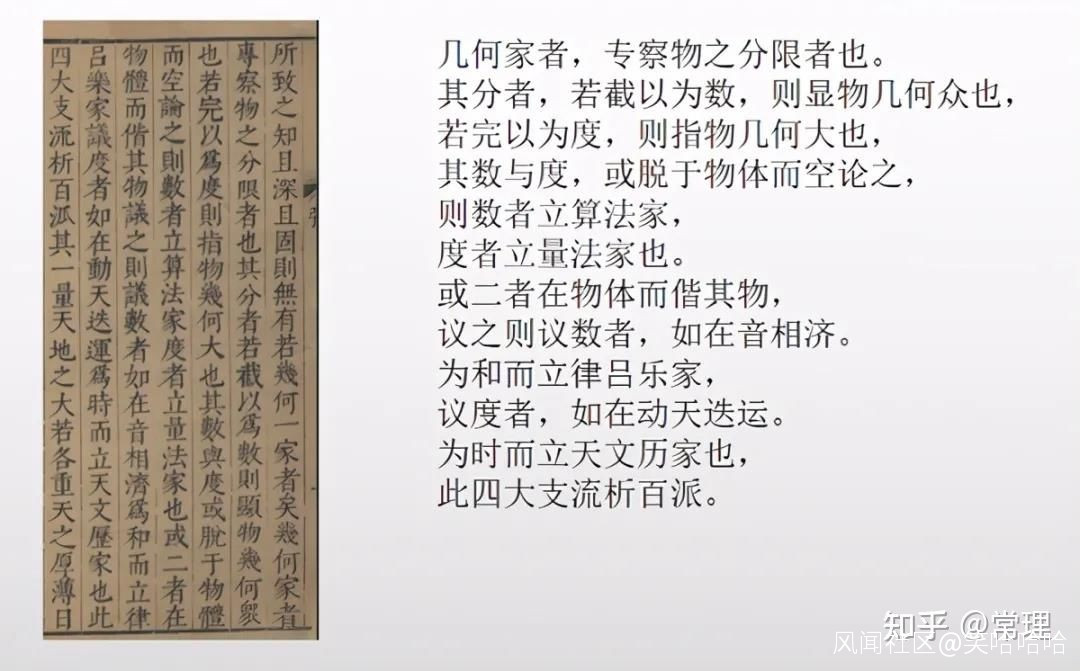 所致之知且深且固則無有若幾何一家者矣幾何家者
專察物之分限者也其分者若截以爲數則顯物幾何衆
也若完以爲度則指物幾何大也其數與度或脫于物體
而空論之則數者立算法家度者立量法家也或二者在
物體而偕其物議之則議數者如在音相濟爲和而立律
呂樂家議度者如在動天迭運爲時而立天文歷家也此
四大支流析百派其一量天地之大若各重天之厚薄日
几何家者，专察物之分限者也。
其分者，若截以为数，则显物几何众也，
若完以为度，则指物几何大也，
其数与度，或脱于物体而空论之，
则数者立算法家，
度者立量法家也。
或二者在物体而偕其物，
议之则议数者，如在音相济。
为和而立律吕乐家，
议度者，如在动天迭运。
为时而立天文历家也，
此四大支流析百派。
知乎 @常理
风闻社区@笑哈哈哈